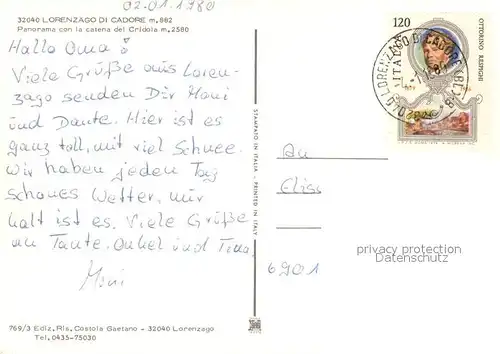 02.01.1980
32040 LORENZAGO DI CADORE m. 882
Panorama con la catena del Cridola m. 2580
Hallo Oma!
Viele Grüße aus Loren-
zago senden Dir Moni
und Dante. Hier ist es
ganz toll, mit viel Schnee.
Wir haben jeden Tag
schönes Wetter, nur
kalt ist es. Viele Grüße
an Tante, Onkel und Tina.
Moni
769/3 Ediz. Ris. Costola Gaetano - 32040 Lorenzago
Tel. 0435-75030
STAMPATO IN ITALIA - PRINTED IN ITALY
120
ITALIA
OTTORINO RESPIGHI
LORENZAGO DI CADORE (BL)
An
6901
privacy protection
Datenschutz